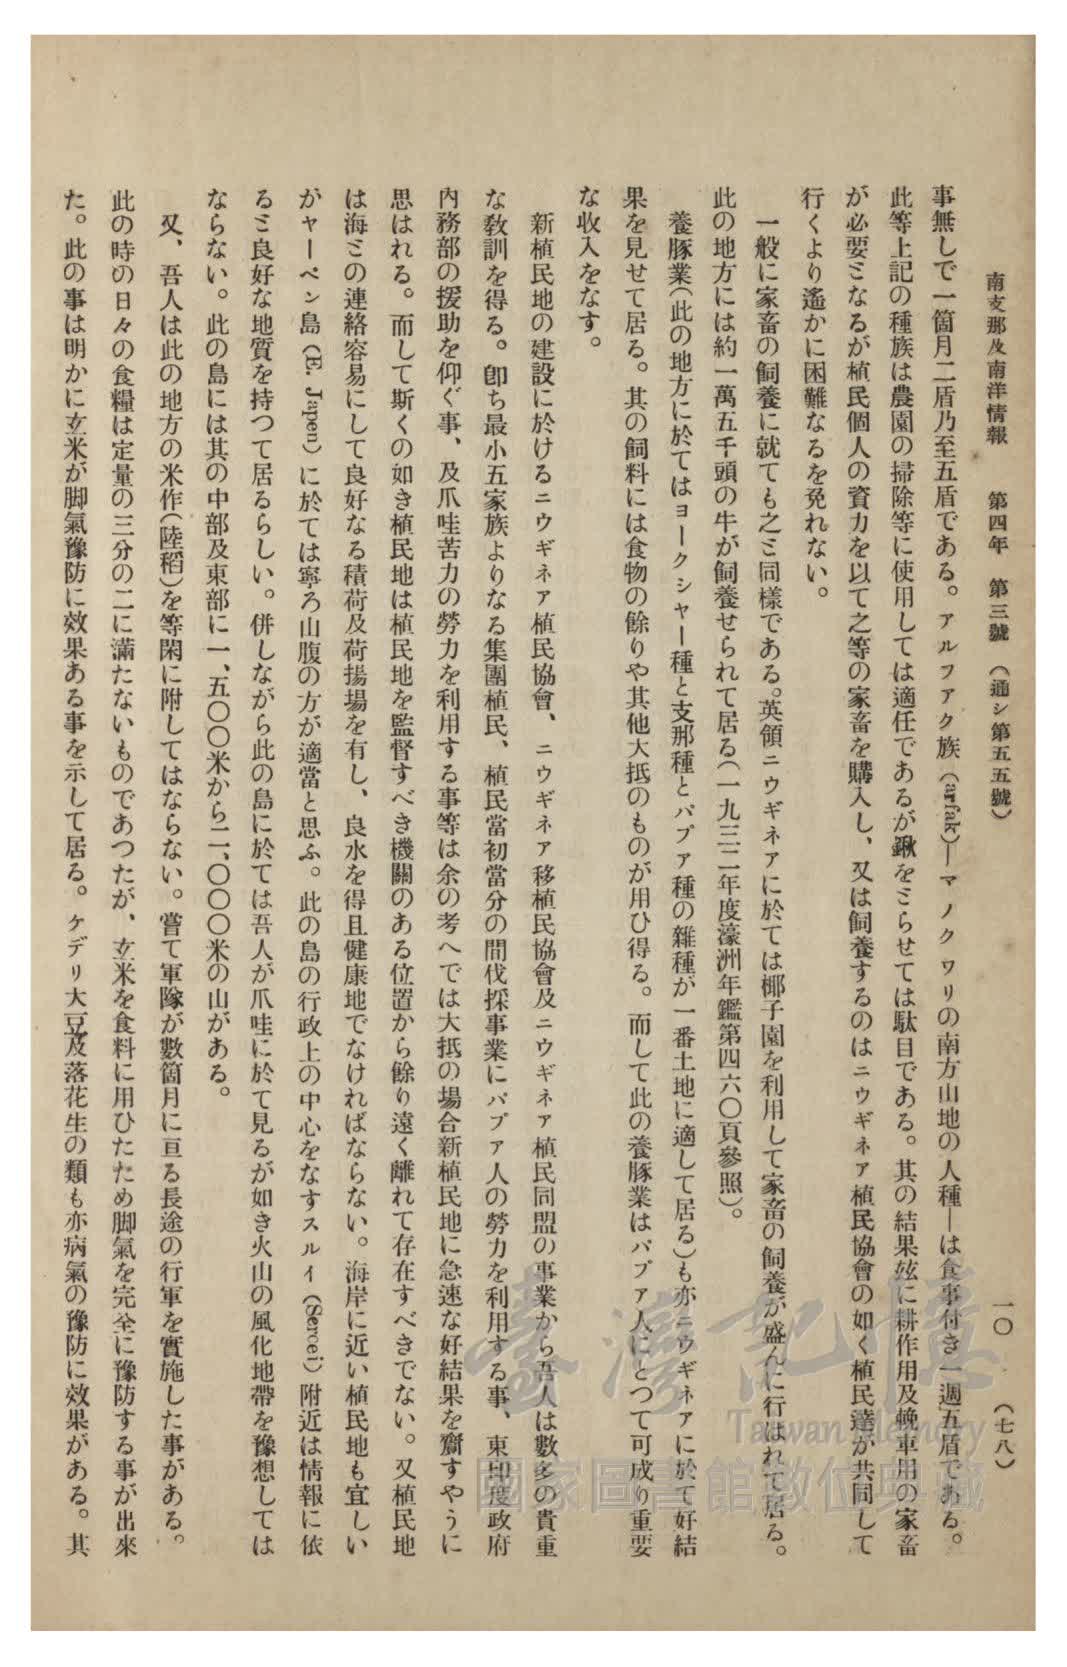 南支那及南洋情報　第四年　第三號　（通シ第五五號）　一〇　（七八）
事無しで一箇月二盾乃至五盾である。アルファク族（arfak）―マノクワリの南方山地の人種―は食事付き一週五盾である。
此等上記の種族は農園の掃除等に使用しては適任であるが鍬をとらせては駄目である。其の結果玆に耕作用及輓車用の家畜
が必要となるが植民個人の資力を以て之等の家畜を購入し、又は飼養するのはニウギネア植民協會の如く植民達が共同して
行くより遙かに困難なるを免れない。
一般に家畜の飼養に就ても之と同樣である。英領ニウギネアに於ては椰子園を利用して家畜の飼養が盛んに行はれて居る。
此の地方には約一萬五千頭の牛が飼養せられて居る（一九三二年度濠洲年鑑第四六〇頁參照）。
養豚業（此の地方に於てはヨークシャー種と支那種とパプア種の雜種が一番土地に適して居る）も亦ニウギネアに於て好結
果を見せて居る。其の飼料には食物の餘りや其他大抵のものが用ひ得る。而して此の養豚業はパプア人にとつて可成り重要
な收入をなす。
新植民地の建設に於けるニウギネア植民協會、ニウギネア移植民協會及ニウギネア植民同盟の事業から吾人は數多の貴重
な敎訓を得る。卽ち最小五家族よりなる集團植民、植民當初當分の間伐採事業にパプア人の勞力を利用する事、東印度政府
內務部の援助を仰ぐ事、及爪哇苦力の勞力を利用する事等は余の考へでは大抵の場合新植民地に急速な好結果を齎すやうに
思はれる。而して斯くの如き植民地は植民地を監督すべき機關のある位置から餘り遠く離れて存在すべきでない。又植民地
は海との連絡容易にして良好なる積荷及荷揚場を有し、良水を得且健康地でなければならない。海岸に近い植民地も宜しい
がヤーペン島（E. Japen）に於ては寧ろ山腹の方が適當と思ふ。此の島の行政上の中心をなすスルイ（Seroei）附近は情報に依
ると良好な地質を持つて居るらしい。併しながら此の島に於ては吾人が爪哇に於て見るが如き火山の風化地帶を豫想しては
ならない。此の島には其の中部及東部に一、五〇〇米から二、〇〇〇米の山がある。
又、吾人は此の地方の米作（陸稻）を等閑に附してはならない。嘗て軍隊が數箇月に亘る長途の行軍を實施した事がある。
此の時の日々の食糧は定量の三分の二に滿たないものであつたが、玄米を食料に用ひたため脚氣を完全に豫防する事が出來
た。此の事は明かに玄米が脚氣豫防に效果ある事を示して居る。ケデリ大豆及落花生の類も亦病氣の豫防に效果がある。其
臺灣記憶
Taiwan Memory
國家圖書館數位典藏